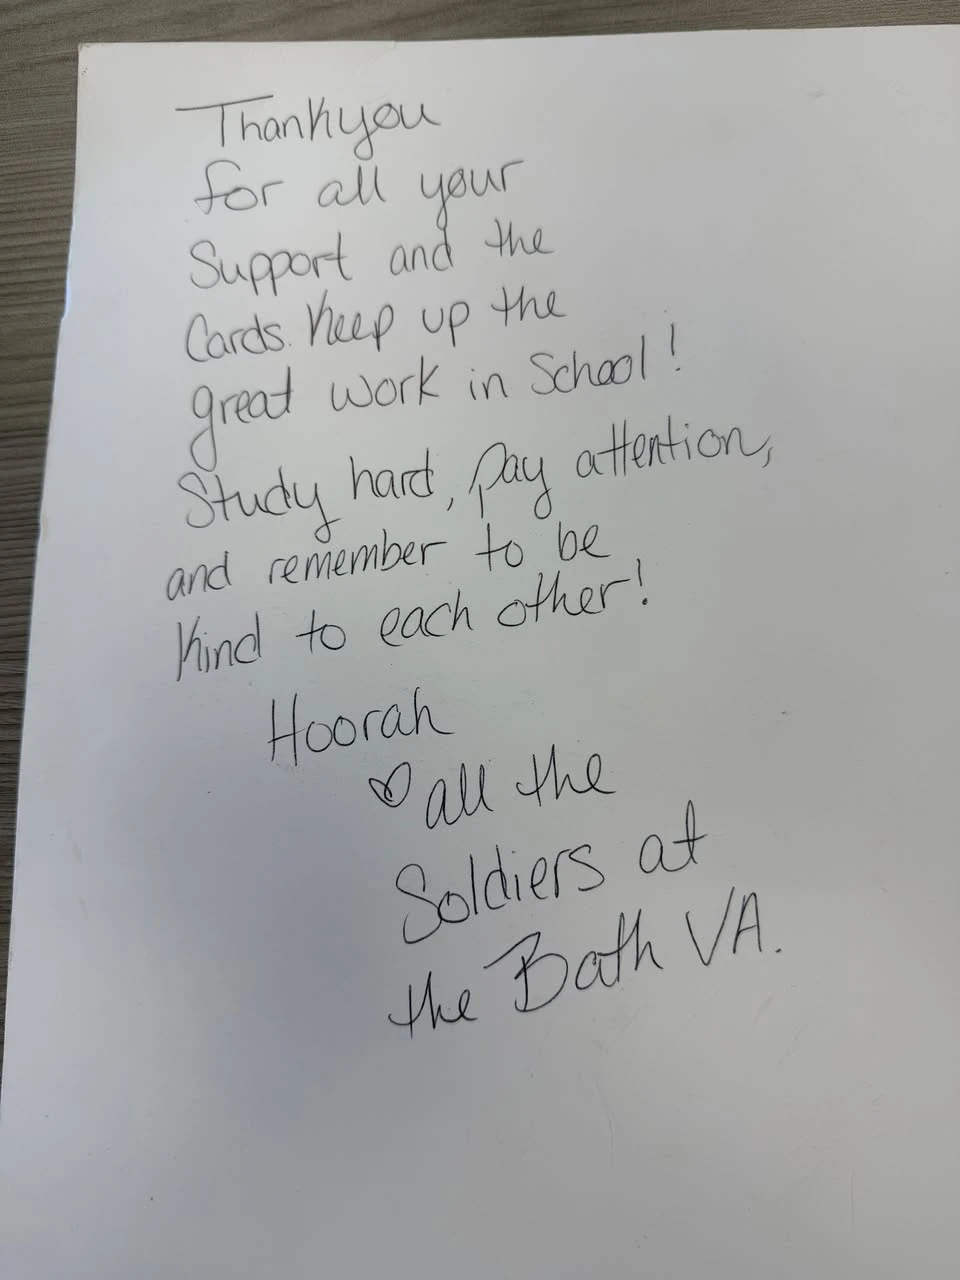 Thankyou
for all your
Support and the
Cards. Keep up the
great work in School!
Study hard, pay attention,
and remember to be
Kind to each other!
Hoorah
♡ all the
Soldiers at
the Bath VA.